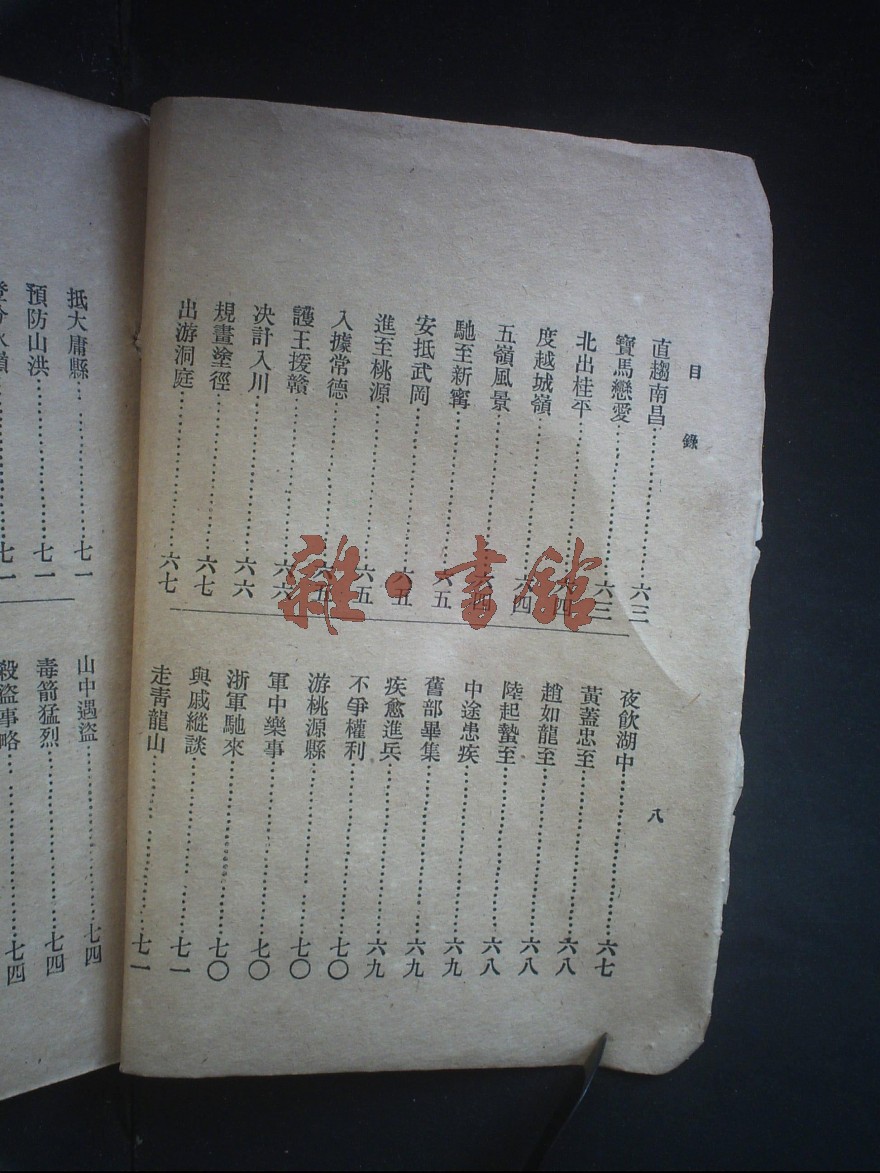 目錄
直趨南昌……六三
寶馬戀愛……六三
北出桂平……六四
度越城嶺……六四
五嶺風景……六四
馳至新甯……六五
安抵武岡……六五
進至桃源……六五
入據常德……六五
護王援贛……六六
决計入川……六六
規畫塗徑……六七
出游洞庭……六七
八
夜飲湖中……六七
黃蓋忠至……六八
趙如龍至……六八
陸起蟄至……六八
中途患疾……六九
舊部畢集……六九
疾愈進兵……六九
不爭權利……七〇
游桃源縣……七〇
軍中樂事……七〇
浙軍馳來……七〇
與戚縱談……七一
走青龍山……七一
抵大庸縣……七一
預防山洪……七一
登分水嶺……七一
山中遇盜……七四
毒箭猛烈……七四
殺盜事略……七四
雜·書館